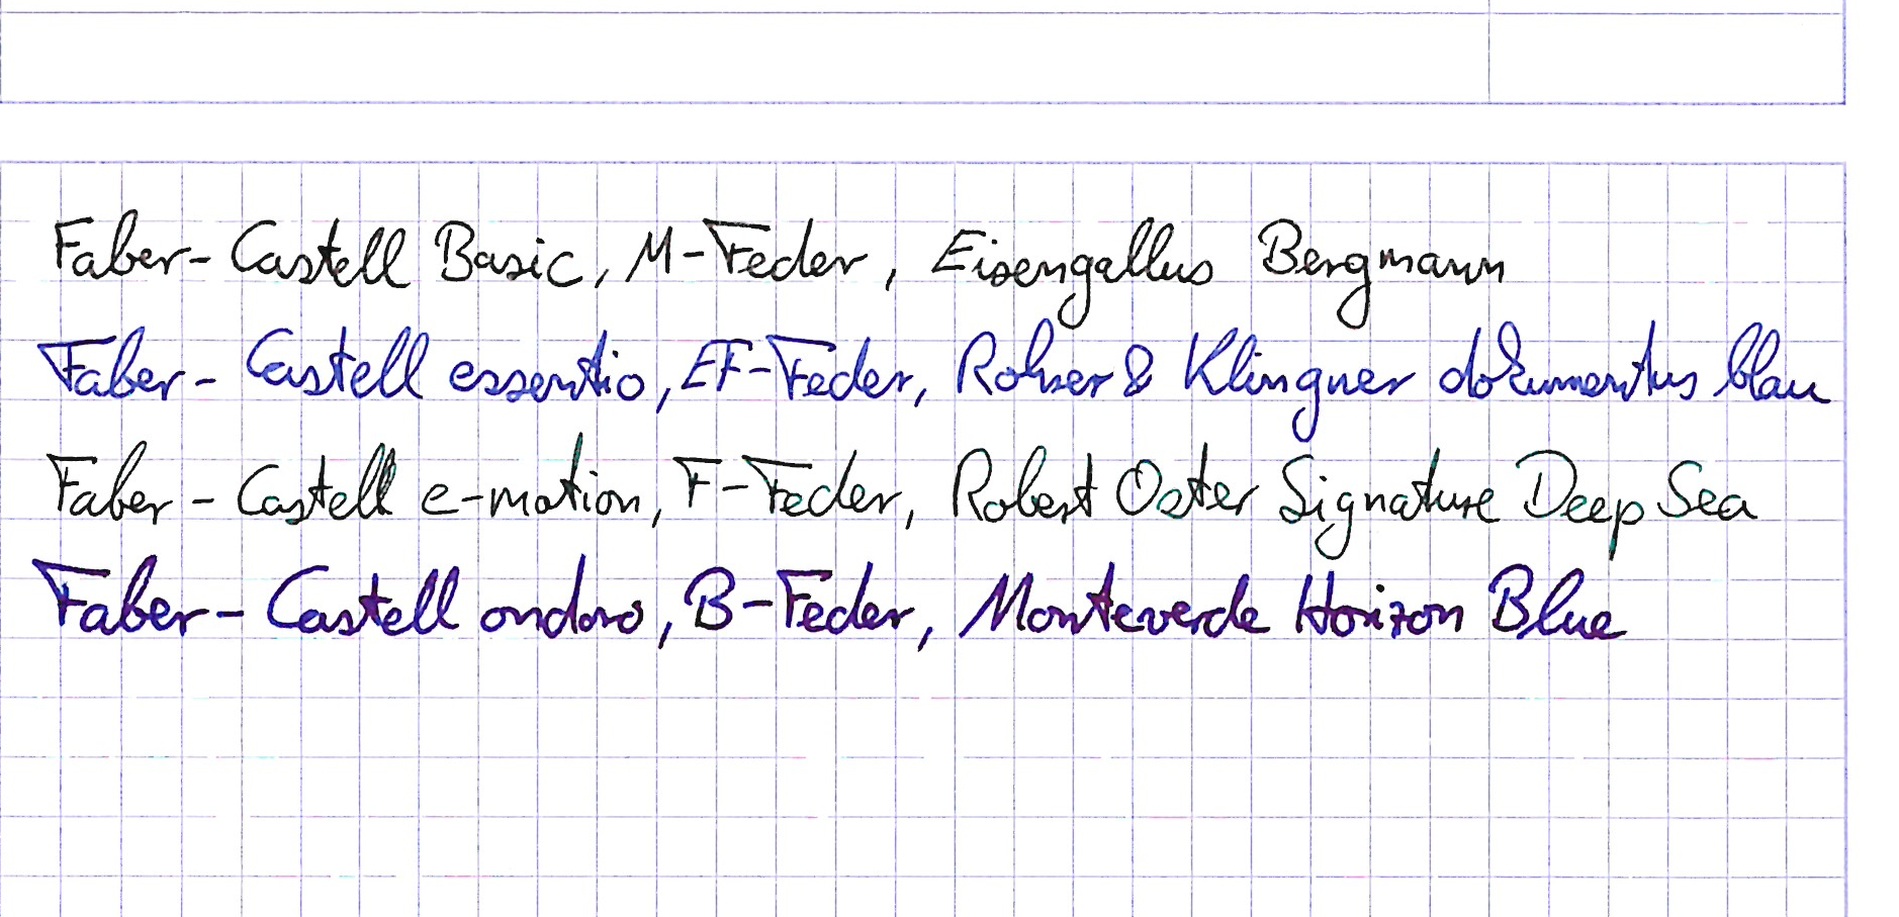 Faber-Castell Basic, M-Feder, Eisengallus Bergmann
Faber-Castell essentio, EF-Feder, Rohrer & Klingner dokumentus blau
Faber-Castell e-motion, F-Feder, Robert Oster Signature Deep Sea
Faber-Castell ondoro, B-Feder, Monteverde Horizon Blue